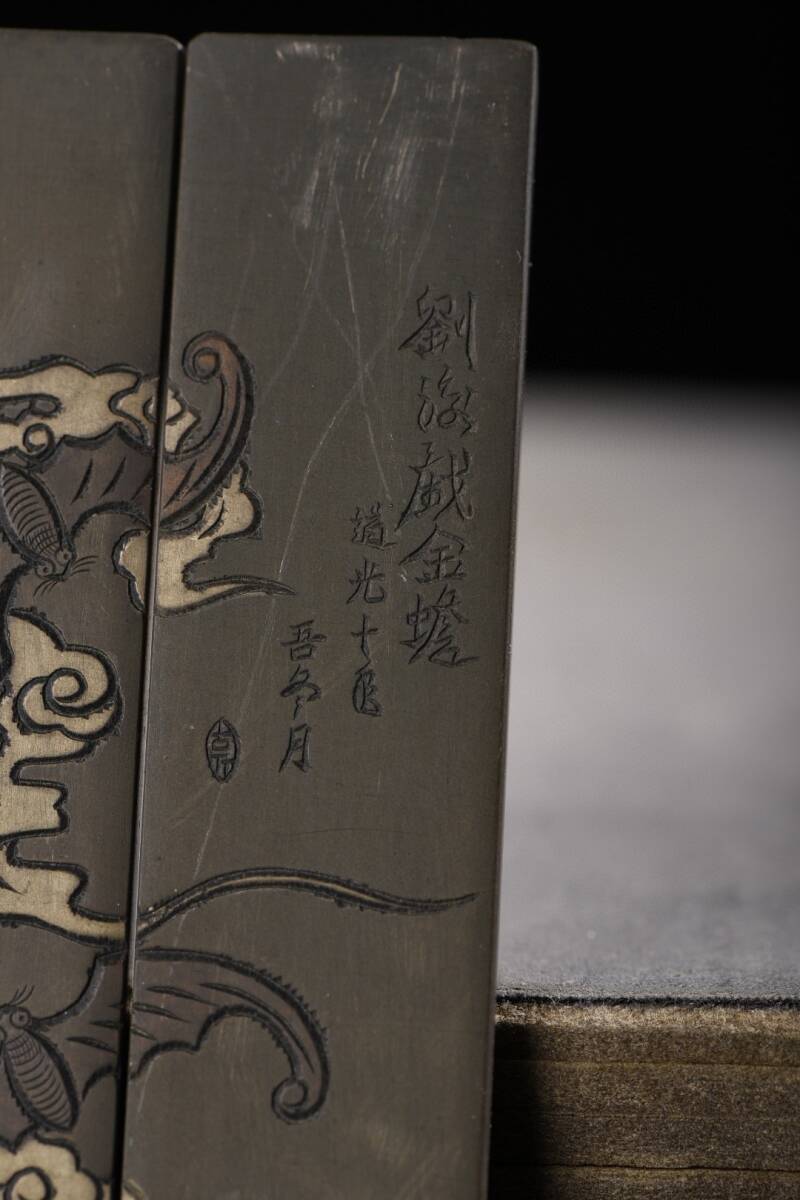 劉海戱金蟾
道光十
吾冬月